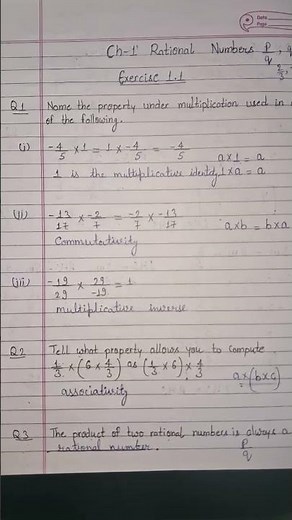 Date
Page
Ch-1 Rational Numbers p/q, q
Exercise 1.1
Q1 Name the property under multiplication used in
of the following.
(i) -4/5 × 1 = 1 × -4/5 = -4/5 a×1 = a
1 is the multiplicative identity 1×a = a
(ii) -13/17 × -2/7 = -2/7 × -13/17 a×b = b×a
Commutativity
(iii) -19/29 × 29/-19 = 1
multiplicative inverse
Q2 Tell what property allows you to compute
1/3 × (6 × 4/3) as (1/3 × 6) × 4/3 a×(b×c)
associativity =
Q3 The product of two rational numbers is always a
rational number. p/q